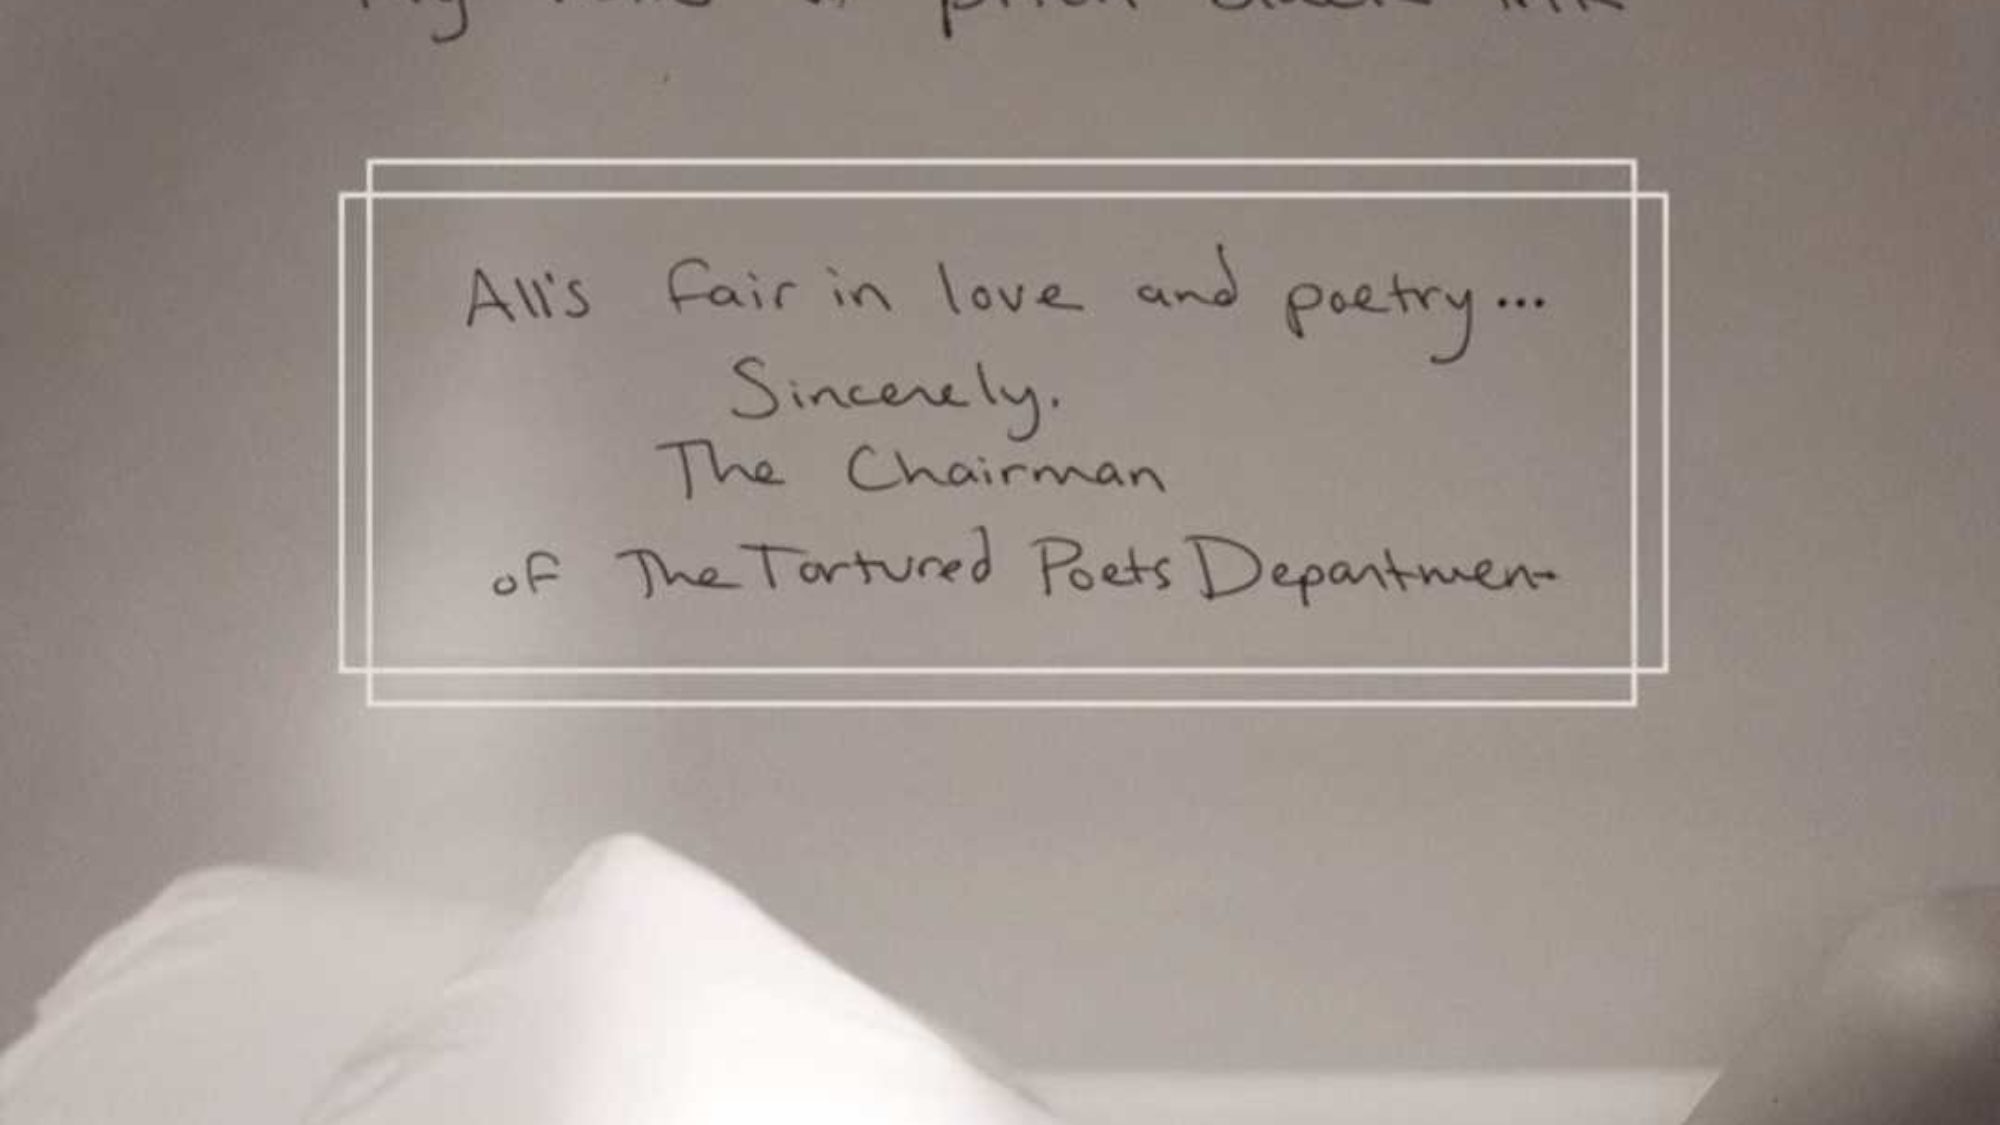 All's fair in love and poetry...
Sincerely.
The Chairman
of The Tortured Poets Department